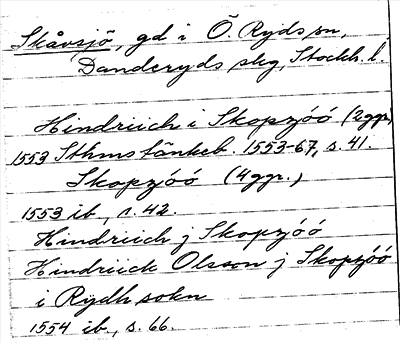 Skåvsjö, gd i Ö. Ryds sn,
Danderyds skg, Stockh. l.
Hindriich i Skopzjóó (2ggr,)
1553 Sthms tänkeb. 1553-67, s. 41.
Skopzjóó (4ggr.)
1553 ib, s. 42.
Hindriich j Skopzjóó
Hindriick Olsson j Skopzjóó
i Rydh sokn
1554 ib., s. 66.